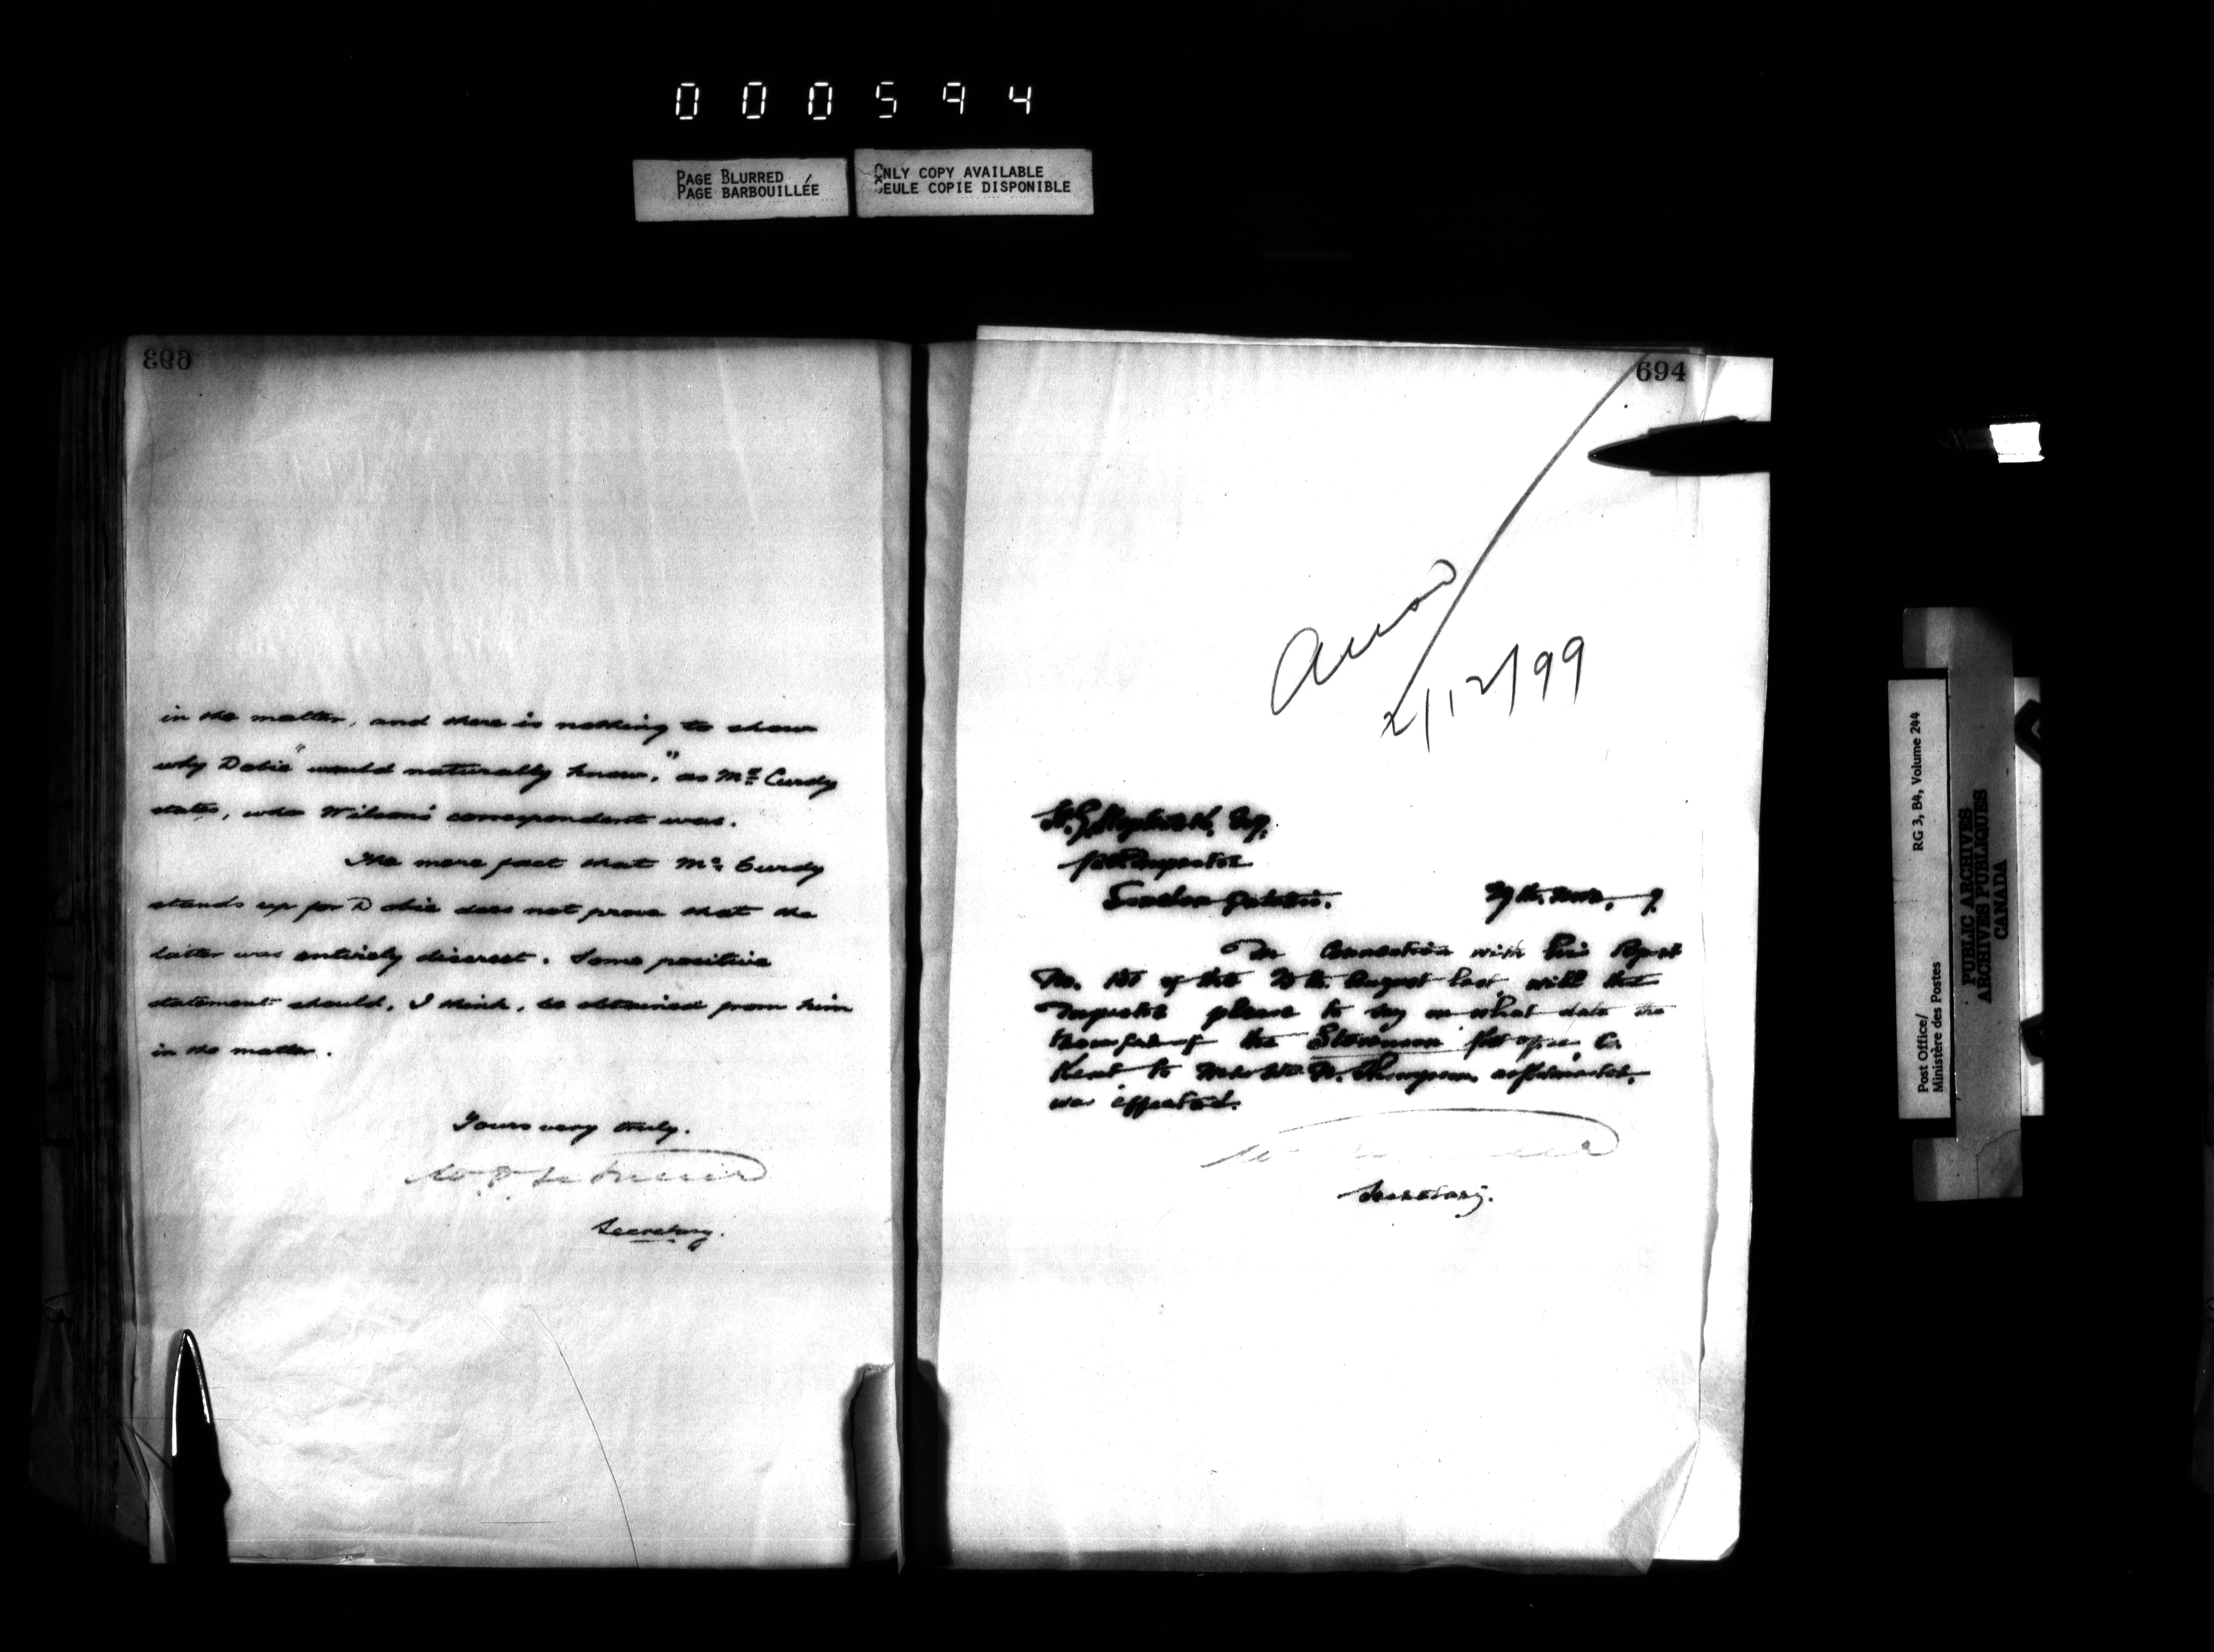 000594
PAGE BLURRED
PAGE BARBOUILLÉE
ONLY COPY AVAILABLE
SEULE COPIE DISPONIBLE
693
in the matter, and there is nothing to show
why Dobie "would naturally know," as Mr. Curdy
states, who Wilson's correspondent was.
The mere fact that Mc. Curdy
stands up for Dobie does not prove that the
latter was entirely discreet. Some positive
statement should, I think, be obtained from him
in the matter.
Yours very truly.
Secretary.
694
2/12/99
Esq.
P.O. Inspector
London Ontario.
In connection with his Report
No. of the August last will the
Inspector please to say on what date the
transfer of the Stevenson Post office, C.
Kent to Thompson, as Postmaster,
was effected.
Secretary.
Post Office/
Ministère des Postes
RG 3, B4, Volume 244
PUBLIC ARCHIVES
ARCHIVES PUBLIQUES
CANADA